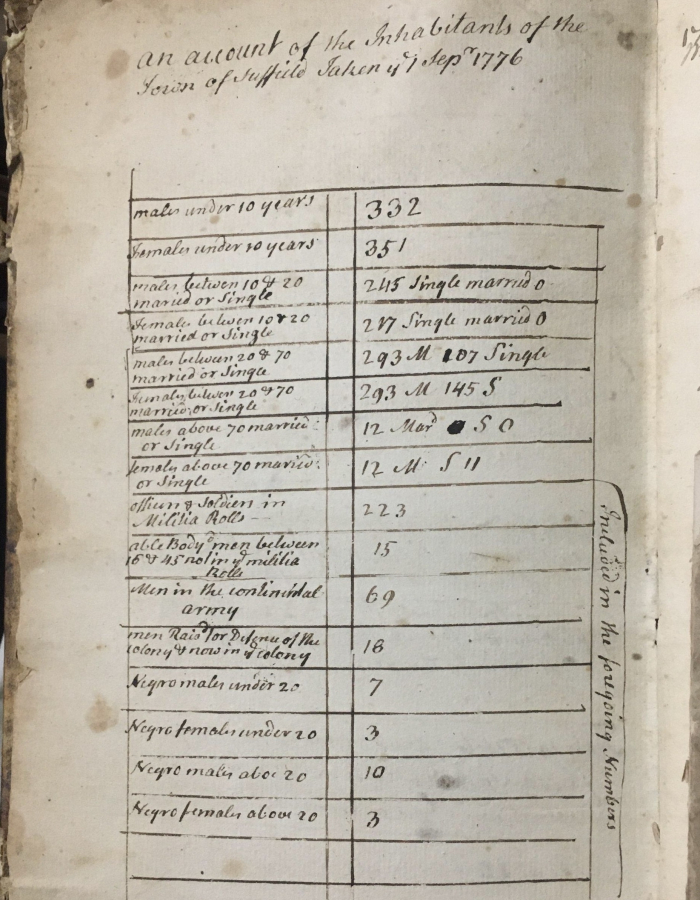 an account of the Inhabitants of the
Town of Suffield Taken ye 1 Sepr 1776
males under 10 years 332
Females under 10 years 351
males betwen 10 & 20
maried or Single 245 Single married 0
Females betwen 10 & 20
married or Single 217 Single married 0
males between 20 & 70
married or Single 293 M 107 Single
Females betwen 20 & 70
married or Single 293 M 145 S
males above 70 married
or Single 12 Mard S 0
females above 70 maried
or Single 12 M S 11
officers & Soldiers in
Militia Rolls 223
able Bodyd men between
16 & 45 not in ye militia
Rolls 15
Men in the continental
army 69
men Raisd for Defence of the
colony & now in ye colony 16
Negro males under 20 7
Negro females under 20 3
Negro males aboc 20 10
Negro females above 20 3
Included in the foregoing Numbers